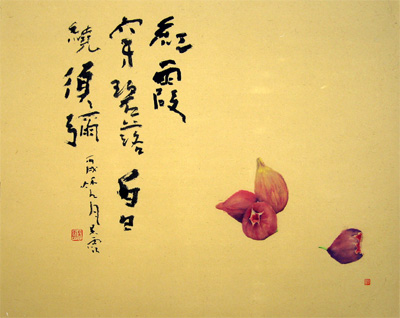 紅霞
穿碧落白日
繞須彌
丙戌秋九月